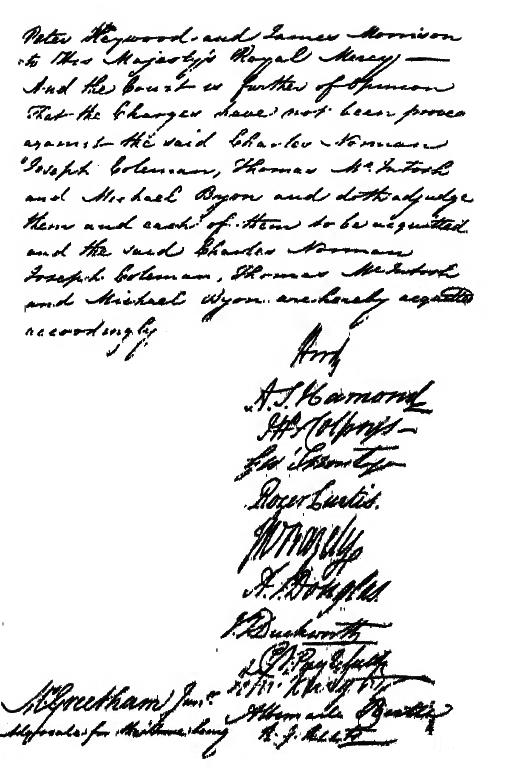 Peter Heywood and James Morrison
to His Majesty's Royal Mercy —
And the Court is further of Opinion
That the Charges have not been proved
against the said Charles Norman
Joseph Coleman, Thomas McIntosh
and Michael Byon and doth adjudge
them and each of them to be acquitted
and the said Charles Norman
Joseph Coleman, Thomas McIntosh
and Michael Byon are hereby acquitted
accordingly
Hood
A. S. Hamond
Colpoys
Roger Curtis.
A. S. Douglas.
Duckworth
M Greetham Junr.
Albemarle Bertie
for the time being